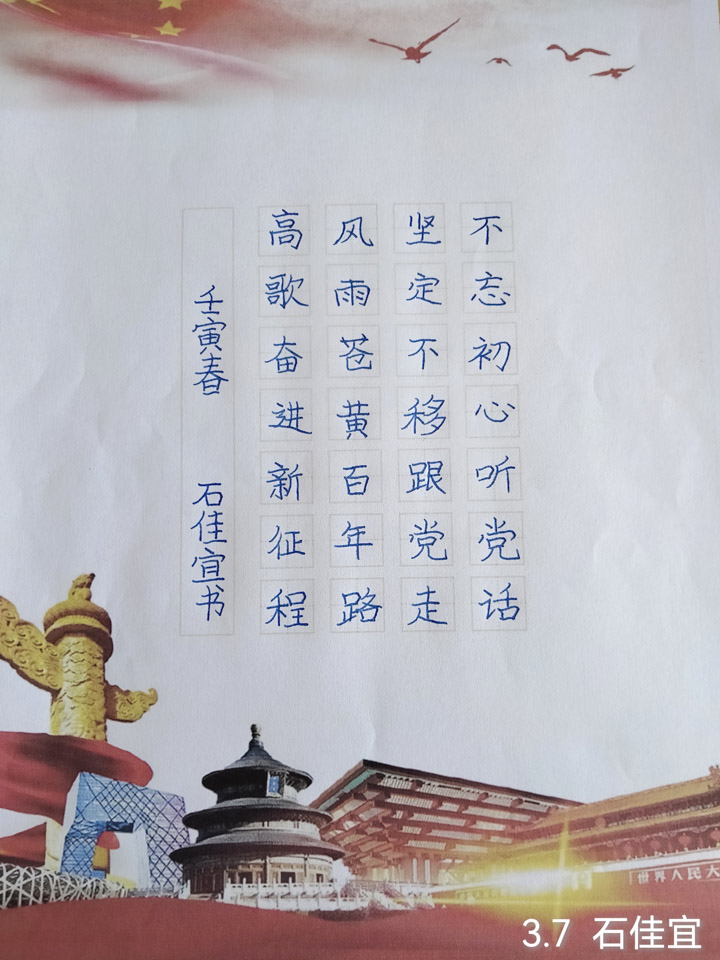 不忘初心听党话
坚定不移跟党走
风雨苍黄百年路
高歌奋进新征程
壬寅春 石佳宜书
世界人民大
3.7 石佳宜